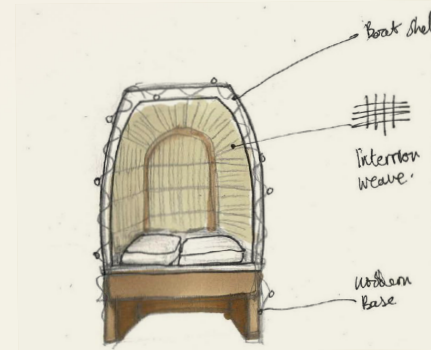 Boat Shel
Interior
weave.
wooden
Base